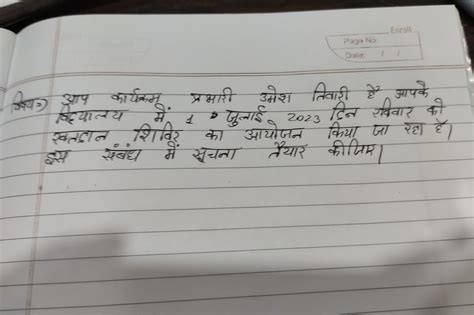 Enroll
Page No:
Date: / /
विषय:-) आप कार्यक्रम प्रभारी उमेश तिवारी है आपके
विद्यालय में 1 जुलाई 2023 दिन रविवार को
रक्तदान शिविर का आयोजन किया जा रहा है।
इस संबंध में सूचना तैयार कीजिए।